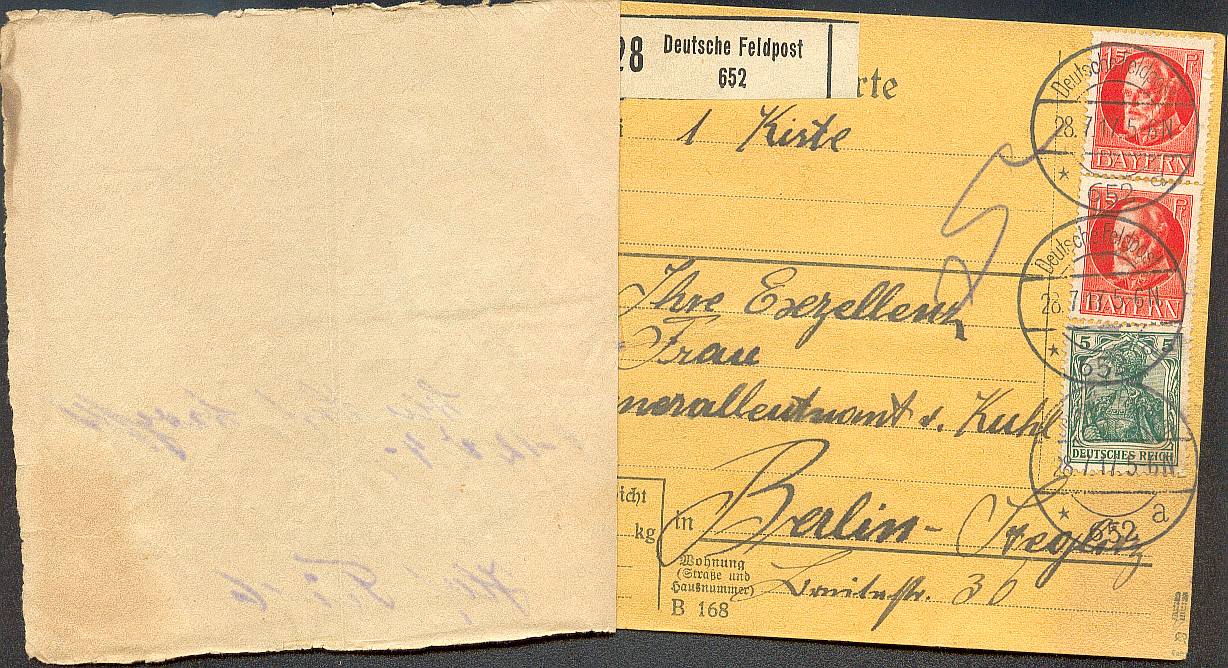 28 Deutsche Feldpost
652
rte
1 Kiste
15 Pf
BAYERN
Deutsche Feldpost
28.7.17.5-6N
* 652 a
15 Pf
BAYERN
Deutsche Feldpost
28.7.17.5-6N
* 652 a
Ihre Exzellenz
Frau
neralleutnant v. Kuhl
5 5
DEUTSCHES REICH
28.7.17.5-6N
* 652 a
icht
kg
in Berlin-Steglitz
Wohnung
(Straße und
Hausnummer)
36
B 168